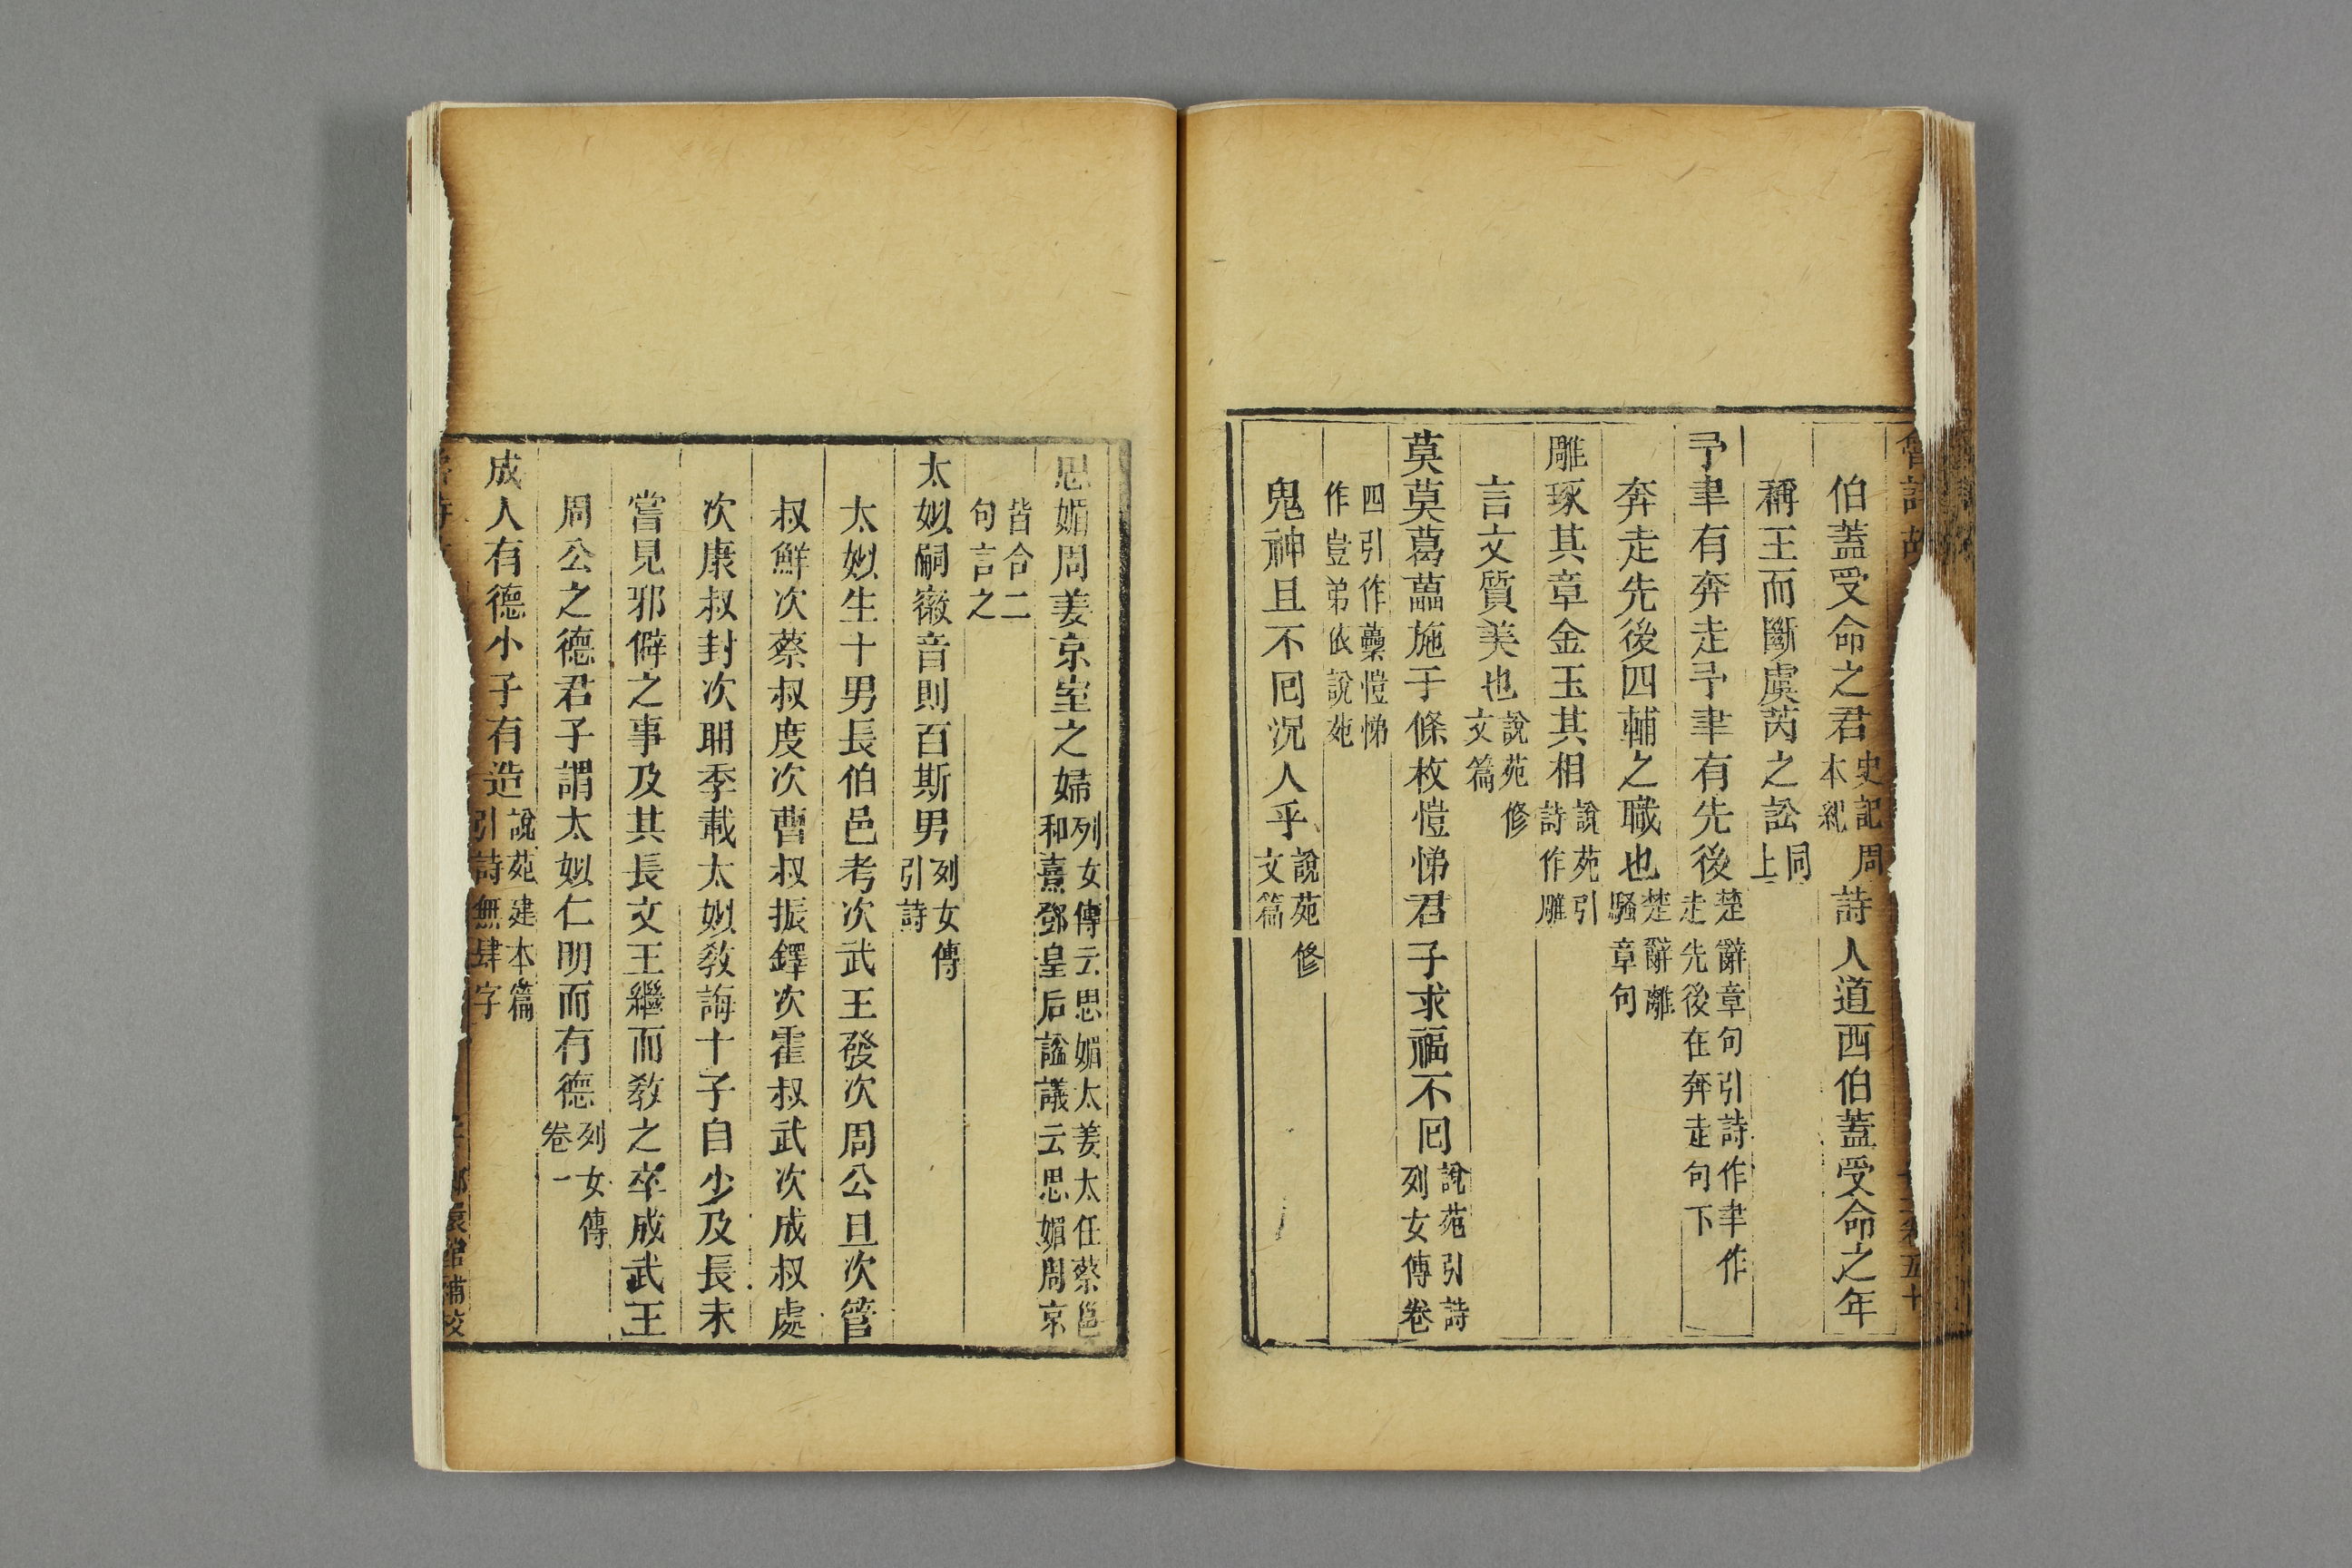 伯蓋受命之君史記周本紀詩人道西伯蓋受命之年
稱王而斷虞芮之訟同上
予聿有奔走予聿有先後楚辭章句引詩作聿作走先後在奔走句下
奔走先後四輔之職也楚辭離騷章句
雕琢其章金玉其相說苑引詩作雕
言文質美也說苑修文篇
莫莫葛藟施于條枚愷悌君子求福不回說苑引詩列女傳卷
四引作虆愷悌作豈弟依說苑
鬼神且不回況人乎說苑修文篇
思媚周姜京室之婦列女傳云思媚太姜太任蔡邕和熹鄧皇后諡議云思媚周京
皆合二句言之
太姒嗣徽音則百斯男列女傳引詩
太姒生十男長伯邑考次武王發次周公旦次管
叔鮮次蔡叔度次曹叔振鐸次霍叔武次成叔處
次康叔封次聃季載太姒敎誨十子自少及長未
嘗見邪僻之事及其長文王繼而敎之卒成武王
周公之德君子謂太姒仁明而有德列女傳卷一
成人有德小子有造說苑建本篇引詩無肆字
嬛館補校